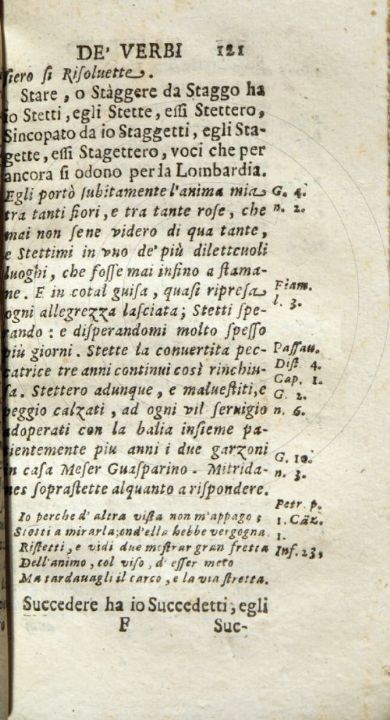 DE' VERBI 121
siero si Risoluette.
Stare, o Stàggere da Staggo ha
io Stetti, egli Stette, essi Stettero,
Sincopato da io Staggetti, egli Sta-
gette, essi Stagettero, voci che per
ancora si odono per la Lombardia.
Egli portò subitamente l'anima mia G. 4.
tra tanti fiori, e tra tante rose, che n. 2.
mai non se ne videro di qua tante,
e Stettimi in vno de' più dilettcuoli
luoghi, che fosse mai infino a stama-
ne. E in cotal guisa, quasi ripresa Fiam.
ogni allegrezza lasciata; Stetti spe- l. 3.
rando: e disperandomi molto spesso
più giorni. Stette la conuertita pec- Passau.
catrice tre anni continui così rinchiu- Dist 4.
sa. Stettero adunque, e maluestiti, e Cap. 1.
peggio calzati, ad ogni vil seruigio G. 2.
adoperati con la balia insieme pa- n. 6.
tientemente piu anni i due garzoni
in casa Meser Guasparino. Mitrida- G. 10.
nes soprastette alquanto a rispondere. n. 3.
Io perche d'altra vista non m'appago; Petr. p.
Stetti a mirarla; ond'ella hebbe vergogna 1. Cāz.
Ristetti, e vidi due mostrar gran fretta 1.
Dell'animo, col viso, d'esser meco Inf. 23,
Ma tardauagli il carco, e la via stretta.
Succedere ha io Succedetti, egli
F Suc-